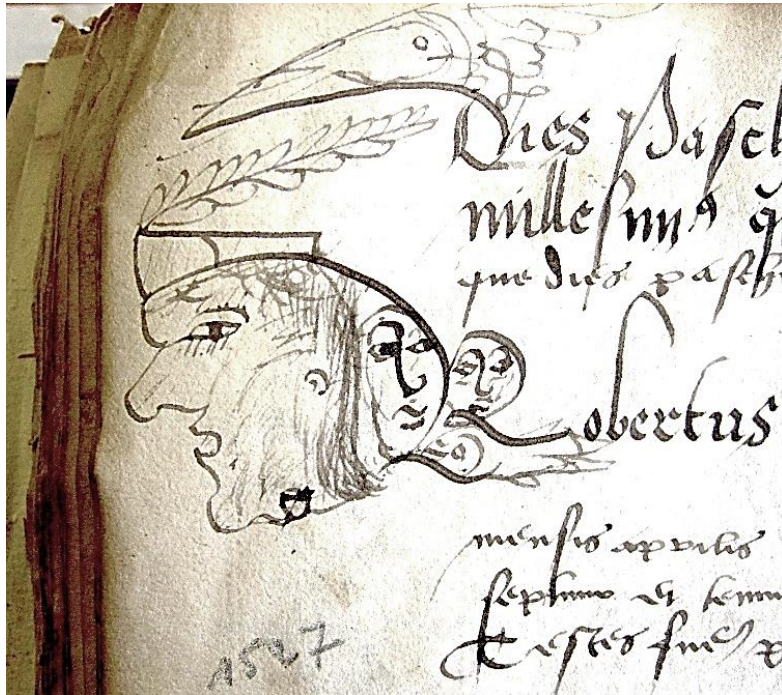 Dies Pasch
millesimꝰ q̃
que dies pasch
Robertus
mensis aprilis
septimo et
Testes fueꝛ̃
1527